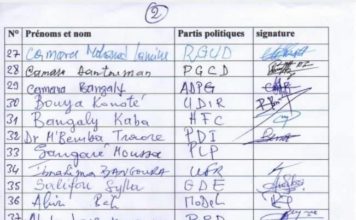 2
N° Prénoms et nom Partis politiques signature
27 Camara
28 Camara Dantouman PGCD
29 Camara Bangaly ADPG
30 Bouya Konaté UDIR
31 Bangaly Kaba HFC
32 Dr M'Bemba Traore PDI
33 Sangaré Moussa PLP
34 Ibrahima BANGOURA UFR
35 Salifou Sylla GDE
36 MoDeL
37